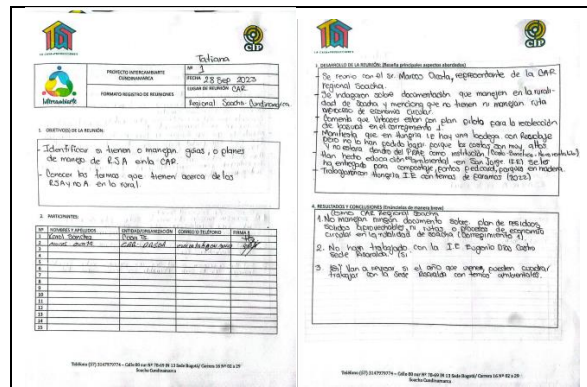 CIP
Tatiana
Intercambiarte
PROYECTO INTERCAMBIARTE
CUNDINAMARCA
FORMATO REGISTRO DE REUNIONES
Nº 1
FECHA 28 Sep 2023
LUGAR DE REUNIÓN CAR
Regional Soacha - Cundinamarca
1. OBJETIVOS DE LA REUNIÓN:
- Identificar si tienen o manejan guías, o planes
de manejo de R.S.A en la CAR.
- Conocer las formas que tienen acerca de los
RSA y no A. en lo rural.
2. PARTICIPANTES:
Nº NOMBRES Y APELLIDOS ENTIDAD/ORGANIZACIÓN CORREO O TELÉFONO FIRMA
1
2
3
4
5
6
7
8
9
10
11
12
13
14
15
Teléfono (57) 3147979774 – Calle 80 sur Nº 78-69 IN 13 Sede Bogotá/ Carrera 16 Nº 02 a 29
Soacha Cundinamarca
CIP
3. DESARROLLO DE LA REUNIÓN: (Reseña principales aspectos abordados)
- Se reunio con el sr. Marcos Ocota, representante de la CAR
regional Soacha.
- Se indagaron sobre documentación que manejen en la rurali-
dad de Soacha y menciona que no tienen ni manejan ruta
o proceso de economía circular.
- Comenta que Urbaser están con plan piloto para la recolección
de basura en el corregimiento 1.
- Manifiesta que en Hungría IE hay una bodega con Reciclaje
pero no lo han podido bajar porque los costos son muy altos
y no estaría dentro del PRAE como institución
- Han hecho educación ambiental en San Jorge I.E.
ha entregado para compostaje, puntos pedicord, parques en madera.
- Trabajaron en Hungría I.E. con temas de paramos (2022)
4. RESULTADOS Y CONCLUSIONES (Enúncielas de manera breve)
(Como CAR Regional Soacha
1. No manejan ningún documento sobre plan de residuos
solidos aprovechables, ni rutas, o procesos de economía
circular en la ruralidad de Soacha (Corregimiento 1)
2. No han trabajado con la I.E Eugenio Díaz Castro
sede Risaralda. (Si
3. Van a revisar si el año que viene, pueden cuadrar
trabajar con la sede Risaralda con temas ambientales.
Teléfono (57) 3147979774 – Calle 80 sur Nº 78-69 IN 13 Sede Bogotá/ Carrera 16 Nº 02 a 29
Soacha Cundinamarca